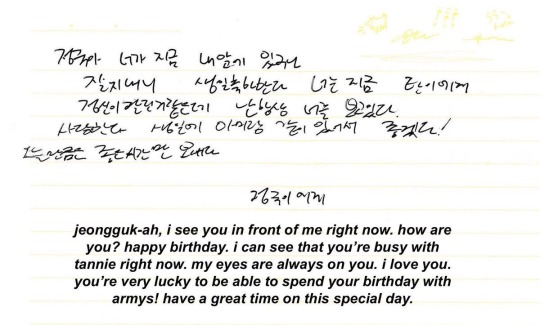 정국아 너가 지금 내앞에 있구나
잘지내니 생일축하한다 너는 지금 탄이에게
정신이 팔린거같은데 난 항상 너를 보고있다.
사랑한다 생일에 아미랑 같이 있어서 좋겠다!
오늘만큼은 좋은시간만 보내라
정국이에게
jeongguk-ah, i see you in front of me right now. how are
you? happy birthday. i can see that you're busy with
tannie right now. my eyes are always on you. i love you.
you're very lucky to be able to spend your birthday with
armys! have a great time on this special day.